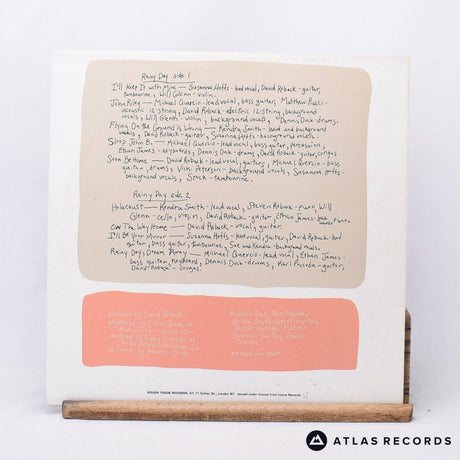 Rainy Day side 1
I'll Keep It with Mine — Susanna Hoffs - lead vocal, David Roback - guitar,
tambourine, Will Glenn - violin.
John Riley — Michael Quercio - lead vocal, bass guitar, Matthew Piucci -
acoustic 12-string, David Roback - electric 12-string, background
vocals, Will Glenn - violin, background vocals, Dennis Duck - drums.
Flying On the Ground is Wrong — Kendra Smith - lead and background
vocals, David Roback - guitar, Susanna Hoffs - background vocals.
Sloop John B. — Michael Quercio - lead vocal, bass guitar, percussion,
Ethan James - keyboards, Dennis Duck - drums, David Roback - guitar, congas.
Soon Be Home — David Roback - lead vocal, guitars, Michael Quercio - bass
guitar, drums, Vicki Peterson - background vocals, Susanna Hoffs -
background vocals, - tambourine.
Rainy Day side 2
Holocaust — Kendra Smith - lead vocal, Steven Roback - piano, Will
Glenn - cello, violin, David Roback - guitar, Ethan James - piano.
On The Way Home — David Roback - vocal, guitar.
I'll Be Your Mirror — Susanna Hoffs - lead vocal, guitar, David Roback - lead
guitar, bass guitar, tambourine, Sue and Kendra - background vocals.
Rainy Day, Dream Away — Michael Quercio - lead vocal, Ethan James -
bass guitar, keyboard, Dennis Duck - drums, Karl Precoda - guitar,
David Roback - congas.
produced by David Roback
engineered by Ethan James at
Radio Tokyo
ROUGH TRADE RECORDS, 61-71 Collier St., London N1 Issued under licence from Llama Records
ATLAS RECORDS